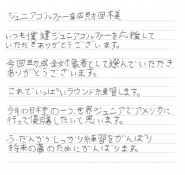 ジュニアゴルファー育成財団様
いつも僕達ジュニアゴルファーを応援して
いただきありがとうございます。
今回助成金対象者として選んでいただき
ありがとうございます。
これでいっぱいラウンド練習します。
今年の目標の一つ、世界ジュニアでアメリカに
行って優勝したいと思います。
ふだんからしっかり練習をがんばり
将来の夢のためにがんばります。